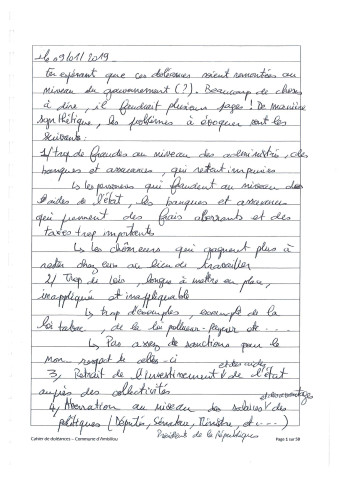 le 09/01/2019.
En espérant que ces doléances soient remontées au
niveau du gouvernement (?). Beaucoup de choses
à dire, il faudrait plusieurs pages ! De manière
synthétique, les problèmes à évoquer sont les
suivants :
1/ trop de fraudes au niveau des administrés, des
banques et assurances, qui restent impunies
↳ les personnes qui fraudent au niveau des
aides de l'état, les banques et assurances
qui prennent des frais aberrants et des
taxes trop importantes
↳ les chômeurs qui gagnent plus à
rester chez eux au lieu de travailler
2/ Trop de lois, longes à mettre en place,
inappliquée et inapplicable
↳ trop d'exemples, exemple de la
loi tabac, de la loi pollueur-payeur etc ....
↳ Pas assez de sanctions pour le
non respect de celles-ci
et des aides
3/ Retrait de l'investissement de l'état
auprès des collectivités
et des avantages
4/ Aberration au niveau des salaires des
politiques (Députés, Sénateur, Ministre, et ....)
Président de la République
Cahier de doléances – Commune d'Ambillou
Page 1 sur 59